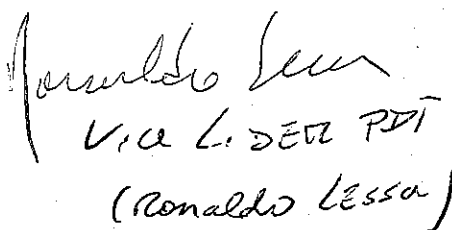 Ronaldo Lessa
Vice LiDER PDT
(Ronaldo Lessa)